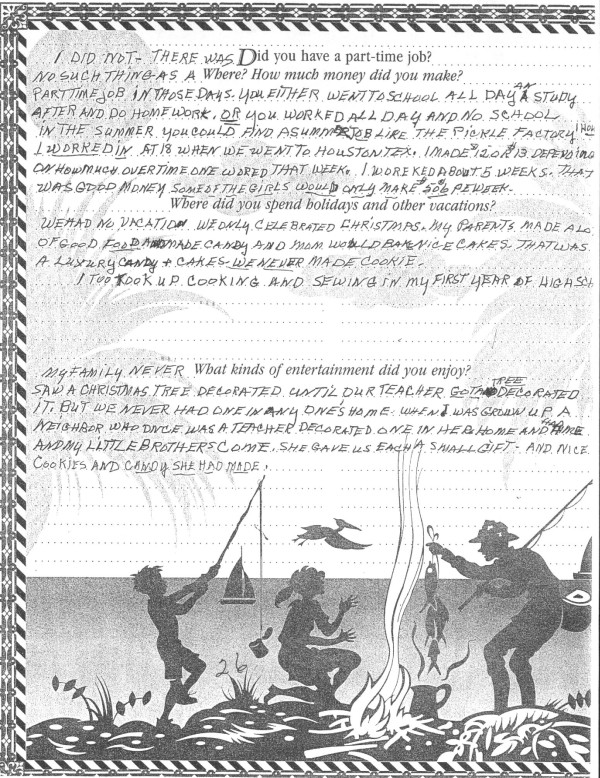 I DID NOT - THERE WAS Did you have a part-time job?
NO SUCH THING AS A Where? How much money did you make?
PARTTIME JOB IN THOSE DAYS. YOU EITHER WENT TO SCHOOL ALL DAY AN STUDY
AFTER AND DO HOMEWORK, OR YOU WORKED ALL DAY AND NO SCHOOL
IN THE SUMMER YOU COULD FIND A SUMMER JOB LIKE THE PICKLE FACTORY
I WORKED IN AT 18 WHEN WE WENT TO HOUSTON TEX. I MADE $12 OR $13. DEPENDING
ON HOW MUCH OVERTIME ONE WORED THAT WEEK. I WOREKED ABOUT 5 WEEKS. THAT
WAS GOOD MONEY SOME OF THE GIRLS WOULD ONLY MAKE $5 or 6 PE WEEK.
Where did you spend holidays and other vacations?
WE HAD NO VACATION WE ONLY CELEBRATED CHRISTMAS. MY PARENTS MADE A LO
OF GOOD FOOD MADE CANDY AND MOM WOULD BAKE NICE CAKES. THAT WAS
A LUXURY CANDY + CAKES - WE NEVER MADE COOKIE.
I TOOK UP COOKING AND SEWING IN MY FIRST YEAR OF HIGH SCH
MY FAMILY NEVER What kinds of entertainment did you enjoy?
SAW A CHRISTMAS TREE DECORATED UNTIL OUR TEACHER GOT A TREE DECORATED
IT. BUT WE NEVER HAD ONE IN ANY ONE'S HOME. WHEN I WAS GROWN UP A
NEIGHBOR WHO ONCE WAS A TEACHER DECORATED ONE IN HER HOME AND HAD ME
AND MY LITTLE BROTHERS COME. SHE GAVE US EACH A SMALL GIFT - AND NICE
COOKIES AND CANDY SHE HAD MADE.
26